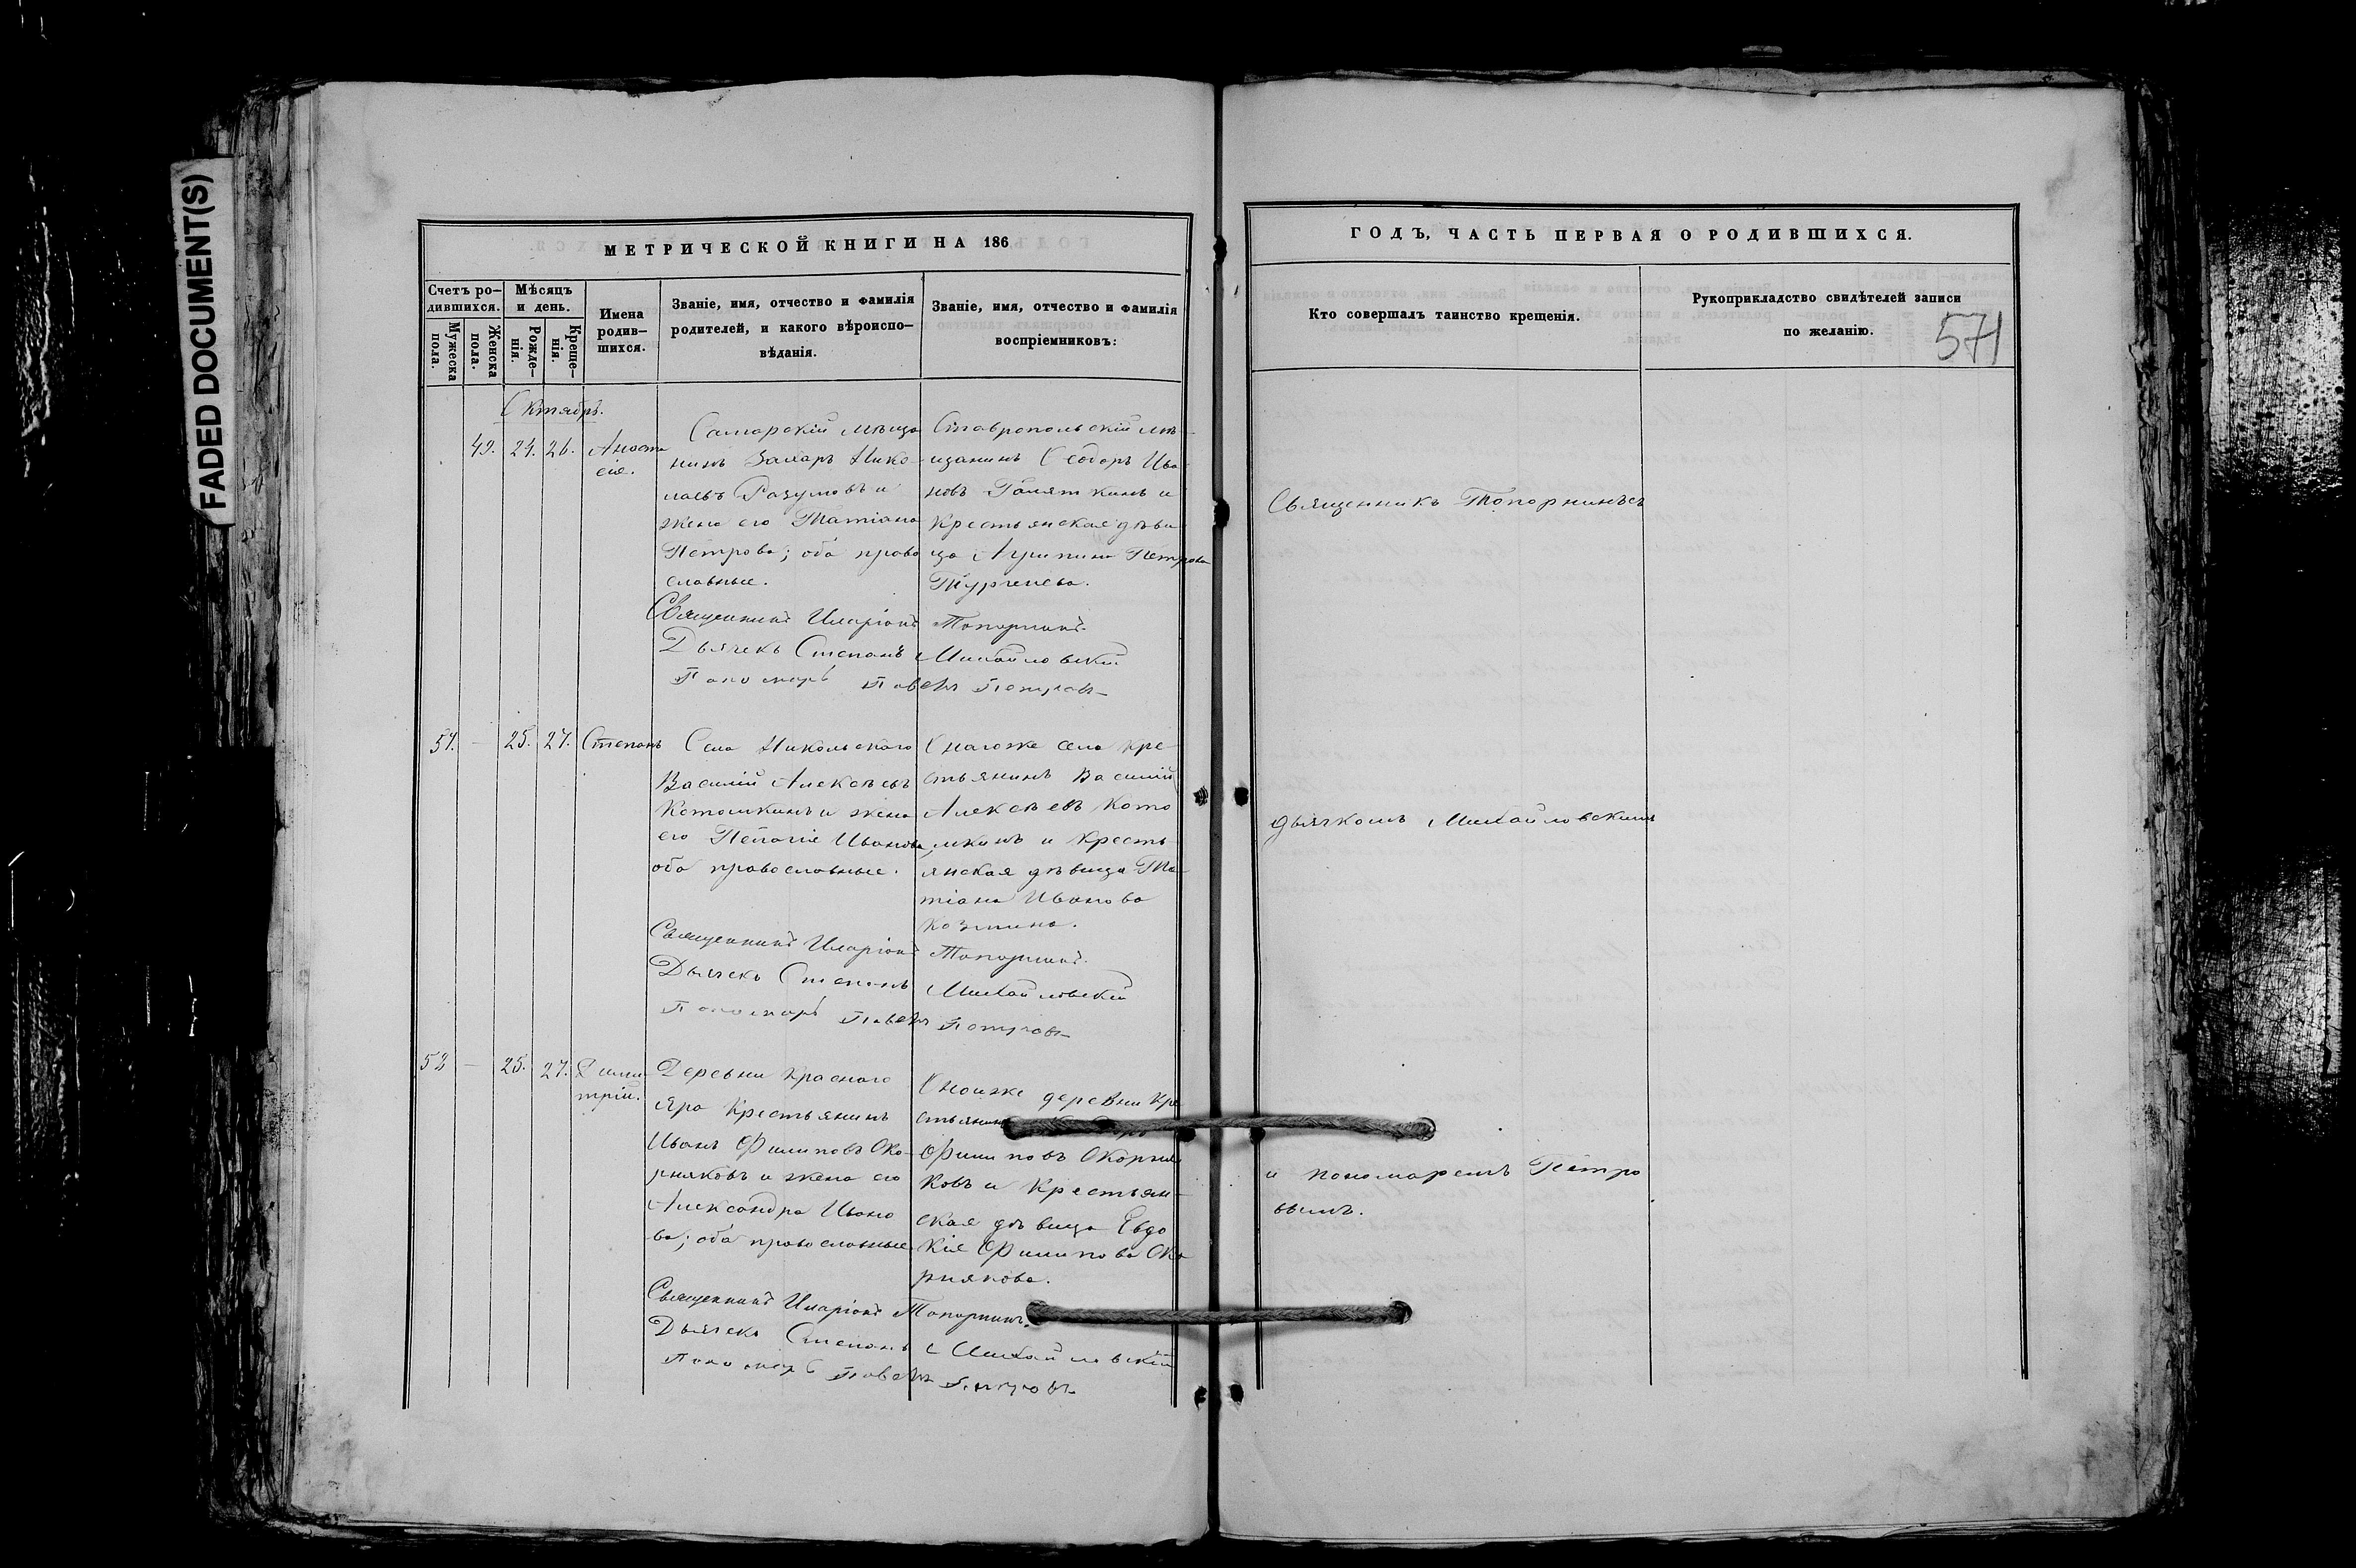 FADED DOCUMENT(S)
МЕТРИЧЕСКОЙ КНИГИ НА 186
Счетъ ро-
дившихся.
Мужеска
пола.
Женска
пола.
Мѣсяцъ
и день.
Рожде-
нія.
Креще-
нія.
Имена
родив-
шихся.
Званіе, имя, отчество и фамилія
родителей, и какого вѣроиспо-
вѣданія.
Званіе, имя, отчество и фамилія
воспріемниковъ:
Октябрь.
49. 24. 26. Анаста
сія.
Самарскій мѣща
нинъ Захаръ Нико-
лаевъ Разумовъ и
жена его Татіана
Петрова; оба право
славные.
Ставропольскій мѣ-
щанинъ Ѳеодоръ Ива
новъ и
крестьянская дѣви
ца Агрипина Петрова
Тургенева.
Священникъ Иларіонъ Топорнинъ.
Дьячекъ Степанъ Михайловскій
Пономарь Павелъ Петровъ
51. - 25. 27. Степанъ
Села Никольскаго
Василій Алексѣевъ
Котомкинъ и жена
его Пелагія Иванова,
оба православные.
Онагоже села кре-
стьянинъ Василій
Алексѣевъ Кото
мкинъ и кресть
янская дѣвица Та-
тіана Иванова
Козмина.
Священникъ Иларіонъ Топорнинъ.
Дьячекъ Степанъ Михайловскій
Пономарь Павелъ Петровъ
52 - 25. 27. Дими-
трій.
Деревни Краснаго
Яра крестьянинъ
Иванъ Филиповъ Око-
рняковъ и жена его
Александра Ивано
ва; оба православные.
Оноиже деревни кре
стьянинъ
Филиповъ Окорня
ковъ и крестьян-
ская дѣвица Евдо
кія Филипова Око
рнякова.
Священникъ Иларіонъ Топорнинъ.
Дьячекъ Степанъ Михайловскій
Пономарь Павелъ Петровъ
ГОДЪ, ЧАСТЬ ПЕРВАЯ О РОДИВШИХСЯ.
Кто совершалъ таинство крещенія.
Рукоприкладство свидѣтелей записи
по желанію.
571
Священникъ Топорнинъ съ
дьячкомъ Михайловскимъ
и пономаремъ Петро
вымъ.